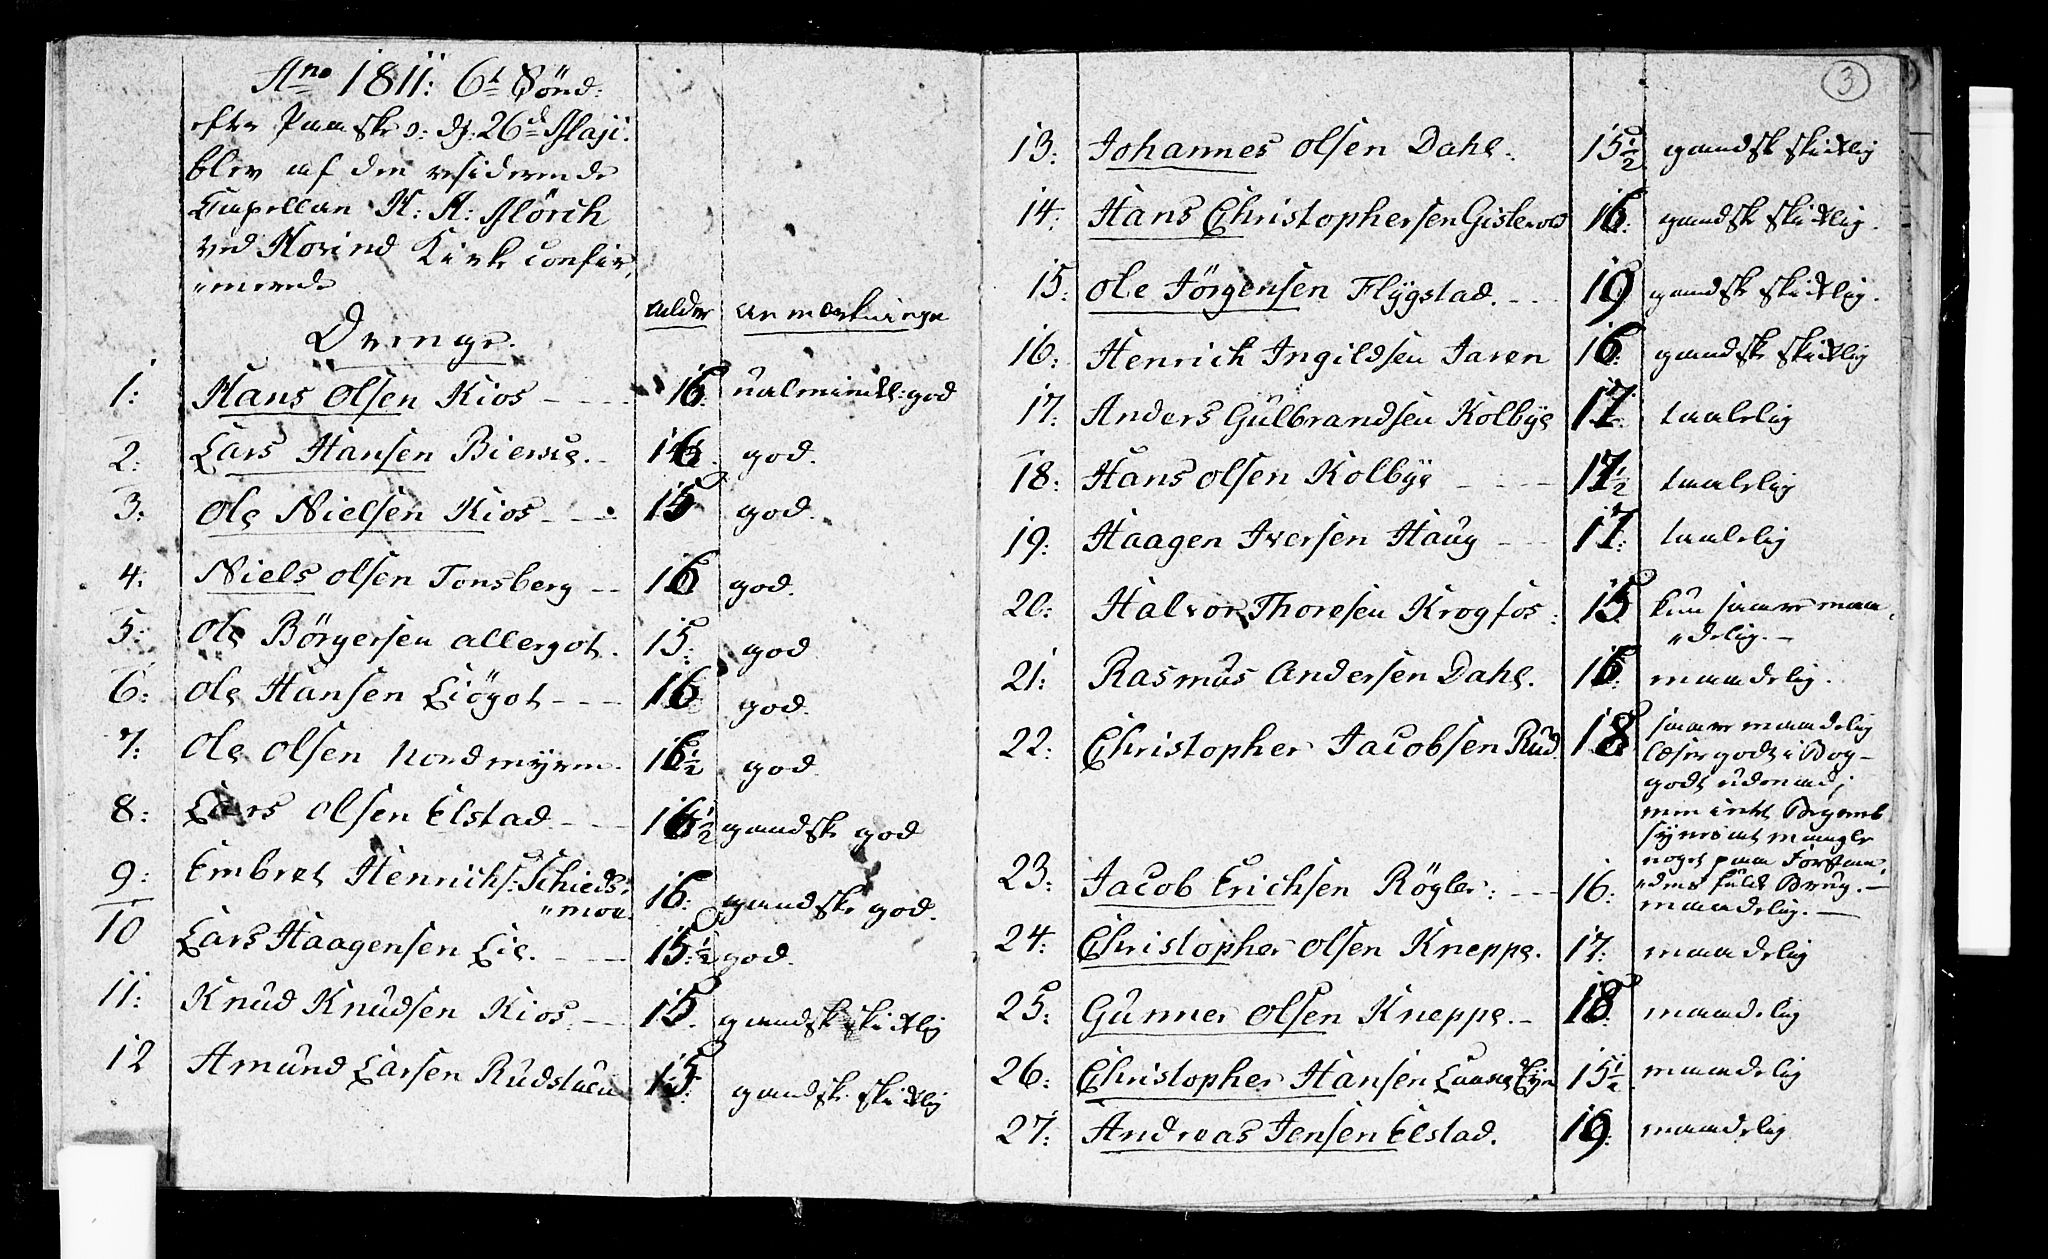 Ano 1811: 6t Sönd:
efter Paaske o: d: 26d Maji.
blev af den residerende
Capellan H: H: Mörch
ved Hovind Kirke confir,
"merede
Drenge. alder anmærkninge
1: Hans Olsen Kios - - - 16. ualmindel: god
2: Lars Hansen Bierke. - 16 god.
3: Ole Nielsen Kios - - - 15 god.
4: Niels olsen Tonsberg - - 16 god.
5: Ole Börgersen allergot. 15: god
6: Ole Hansen Liögot - - - 16 god.
7: Ole olsen nordmyren. 16½ god
8: Lars olsen Elstad - - 16½ gandske god
9: Embret Henrichs: Schieds,
"moe. 16: gandske god.
10 Lars Haagensen Lie. - - - 15½ god.
11: Knud Knudsen Kios. - 15. gandsk skiklig
12 Amund Larsen Rudstuen 15. gandske skiklig
3
13: Johannes olsen Dahl. 15½ gandsk skiklig
14: Hans Christophersen Gislevold 16: gandske skiklig.
15: ole Jörgensen Flygstad. - - 19 gandske skiklig.
16: Henrich Ingildsen Jaren 16: gandske skiklig
17: Anders Gulbrandsen Kolbye 17: taalelig
18: Hans olsen Kolbye - - - 17½ taalelig
19: Haagen Iversen Haug - - 17: taalelig
20: Halvor Thoresen Krogfos: 15 kun saare maa,
"delig. -
21: Rasmus Andersen Dahl. 16: maadelig.
22: Christopher Jacobsen Rud. 18 saare maadelig
læser godt i Bog -
godt udenad;
men intet Begreb
synes at mangle
noget paa Forstan,
"dens fulde Brug. -
23: Jacob Erichsen Rögler: - - 16: maadelig. -
24: Christopher olsen Kneppe. 17: maadelig
25: Gunner olsen Kneppe. - 18: maadelig
26: Christopher Hansen Eye 15½ maadelig
27: Andreas Jensen Elstad. 19. maadelig